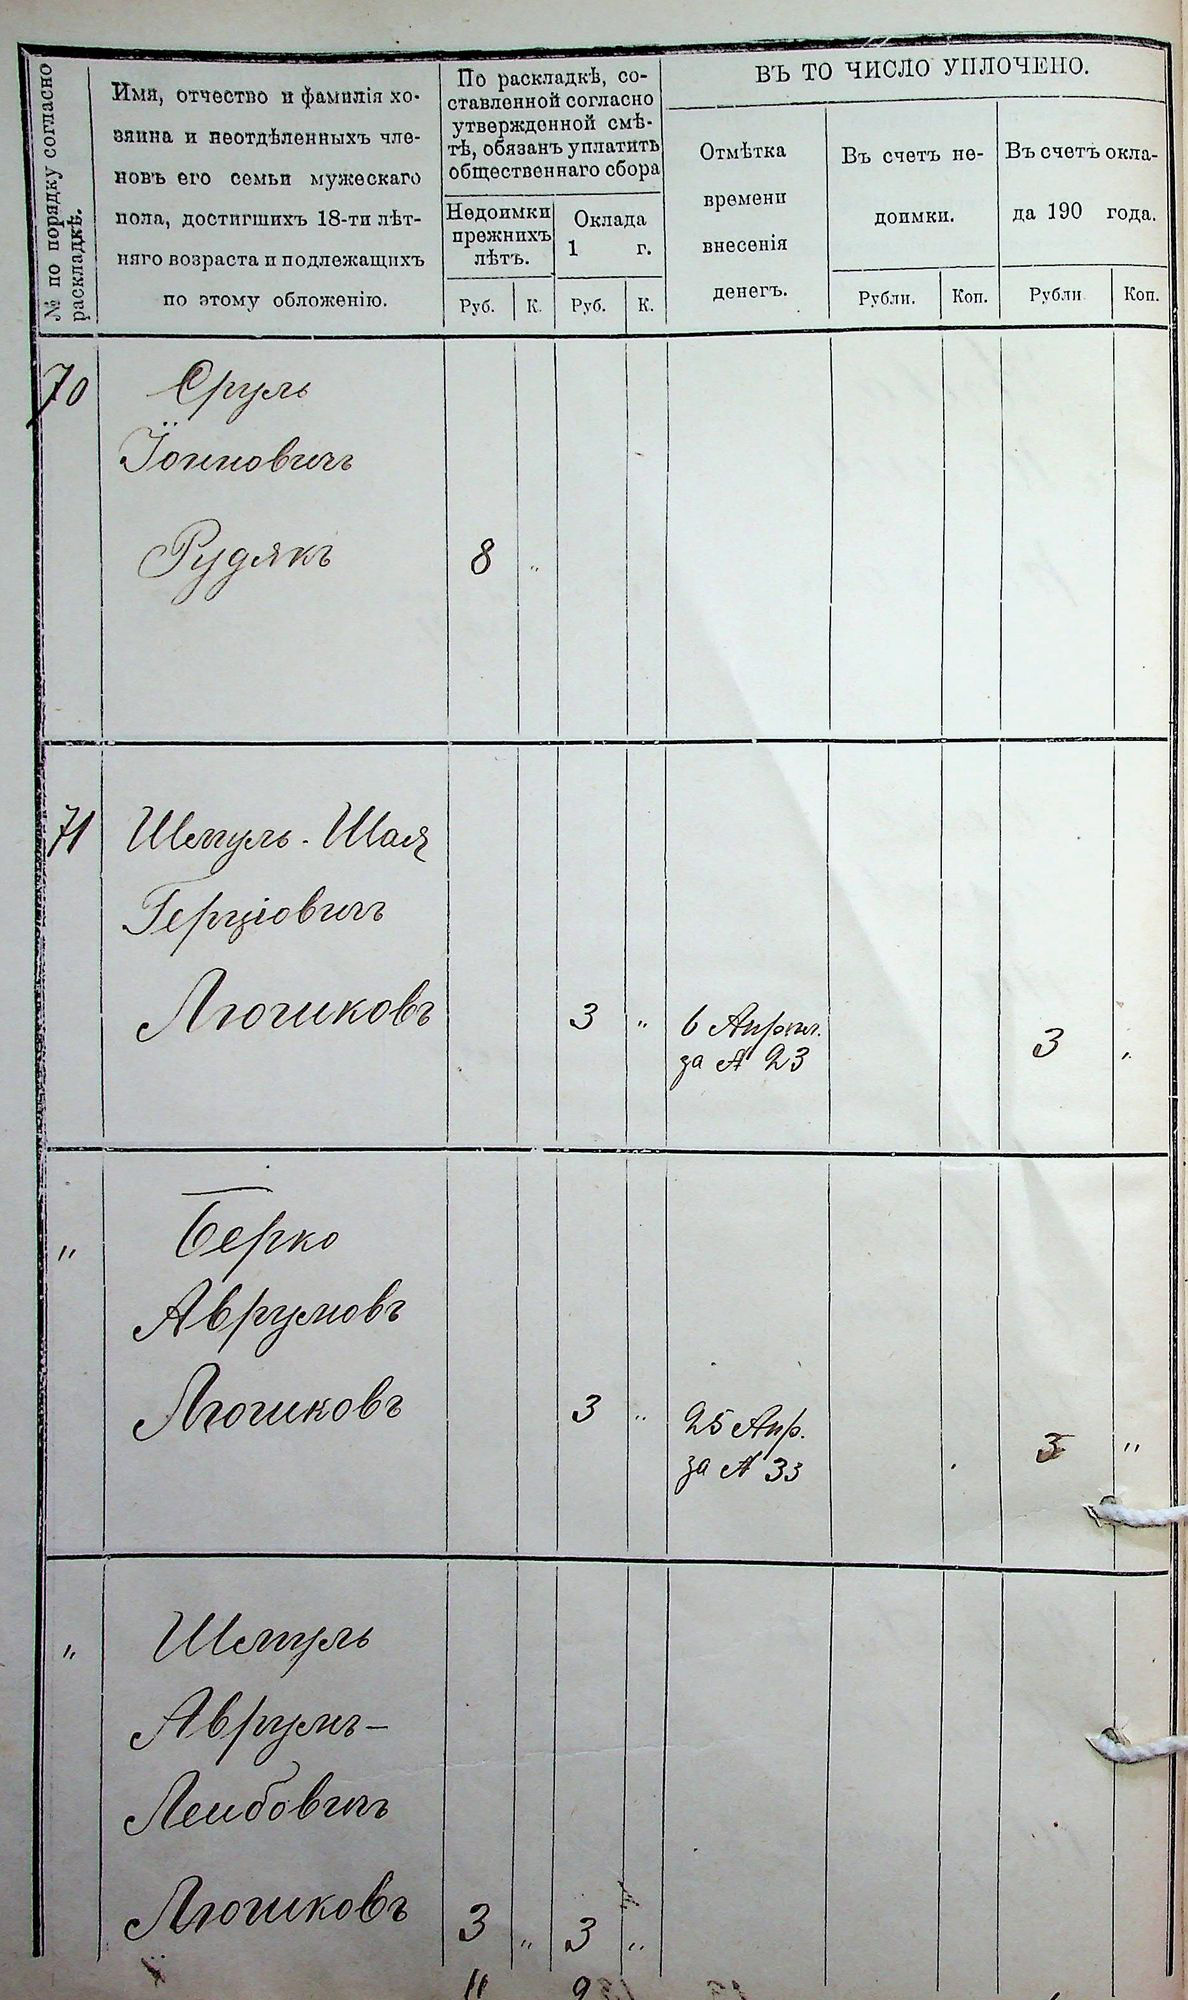 № по порядку согласно
раскладкѣ.
Имя, отчество и фамилія хо-
зяина и неотдѣленныхъ чле-
новъ его семьи мужескаго
пола, достигшихъ 18-ти лѣт-
няго возраста и подлежащихъ
по этому обложенію.
По раскладкѣ, со-
ставленной согласно
утвержденной смѣ-
тѣ, обязанъ уплатить
общественнаго сбора
Недоимки
прежнихъ
лѣтъ.
Оклада
1 г.
Руб. К. Руб. К.
ВЪ ТО ЧИСЛО УПЛОЧЕНО.
Отмѣтка
времени
внесенія
денегъ.
Въ счетъ не-
доимки.
Въ счетъ окла-
да 190 года.
Рубли. Коп. Рубли Коп.
70 Сруль
Іонновичъ
Рудякъ 8 "
71 Шмуль-Шая
Герціовичъ
Лючиковъ 3 " 6 Апрѣл. 3 "
за № 23
" Берко
Аврумовъ
Лючиковъ 3 " 25 Апр. 3 "
за № 33
" Шмуль
Аврумъ-
Лейбовичъ
Лючиковъ 3 " 3 "